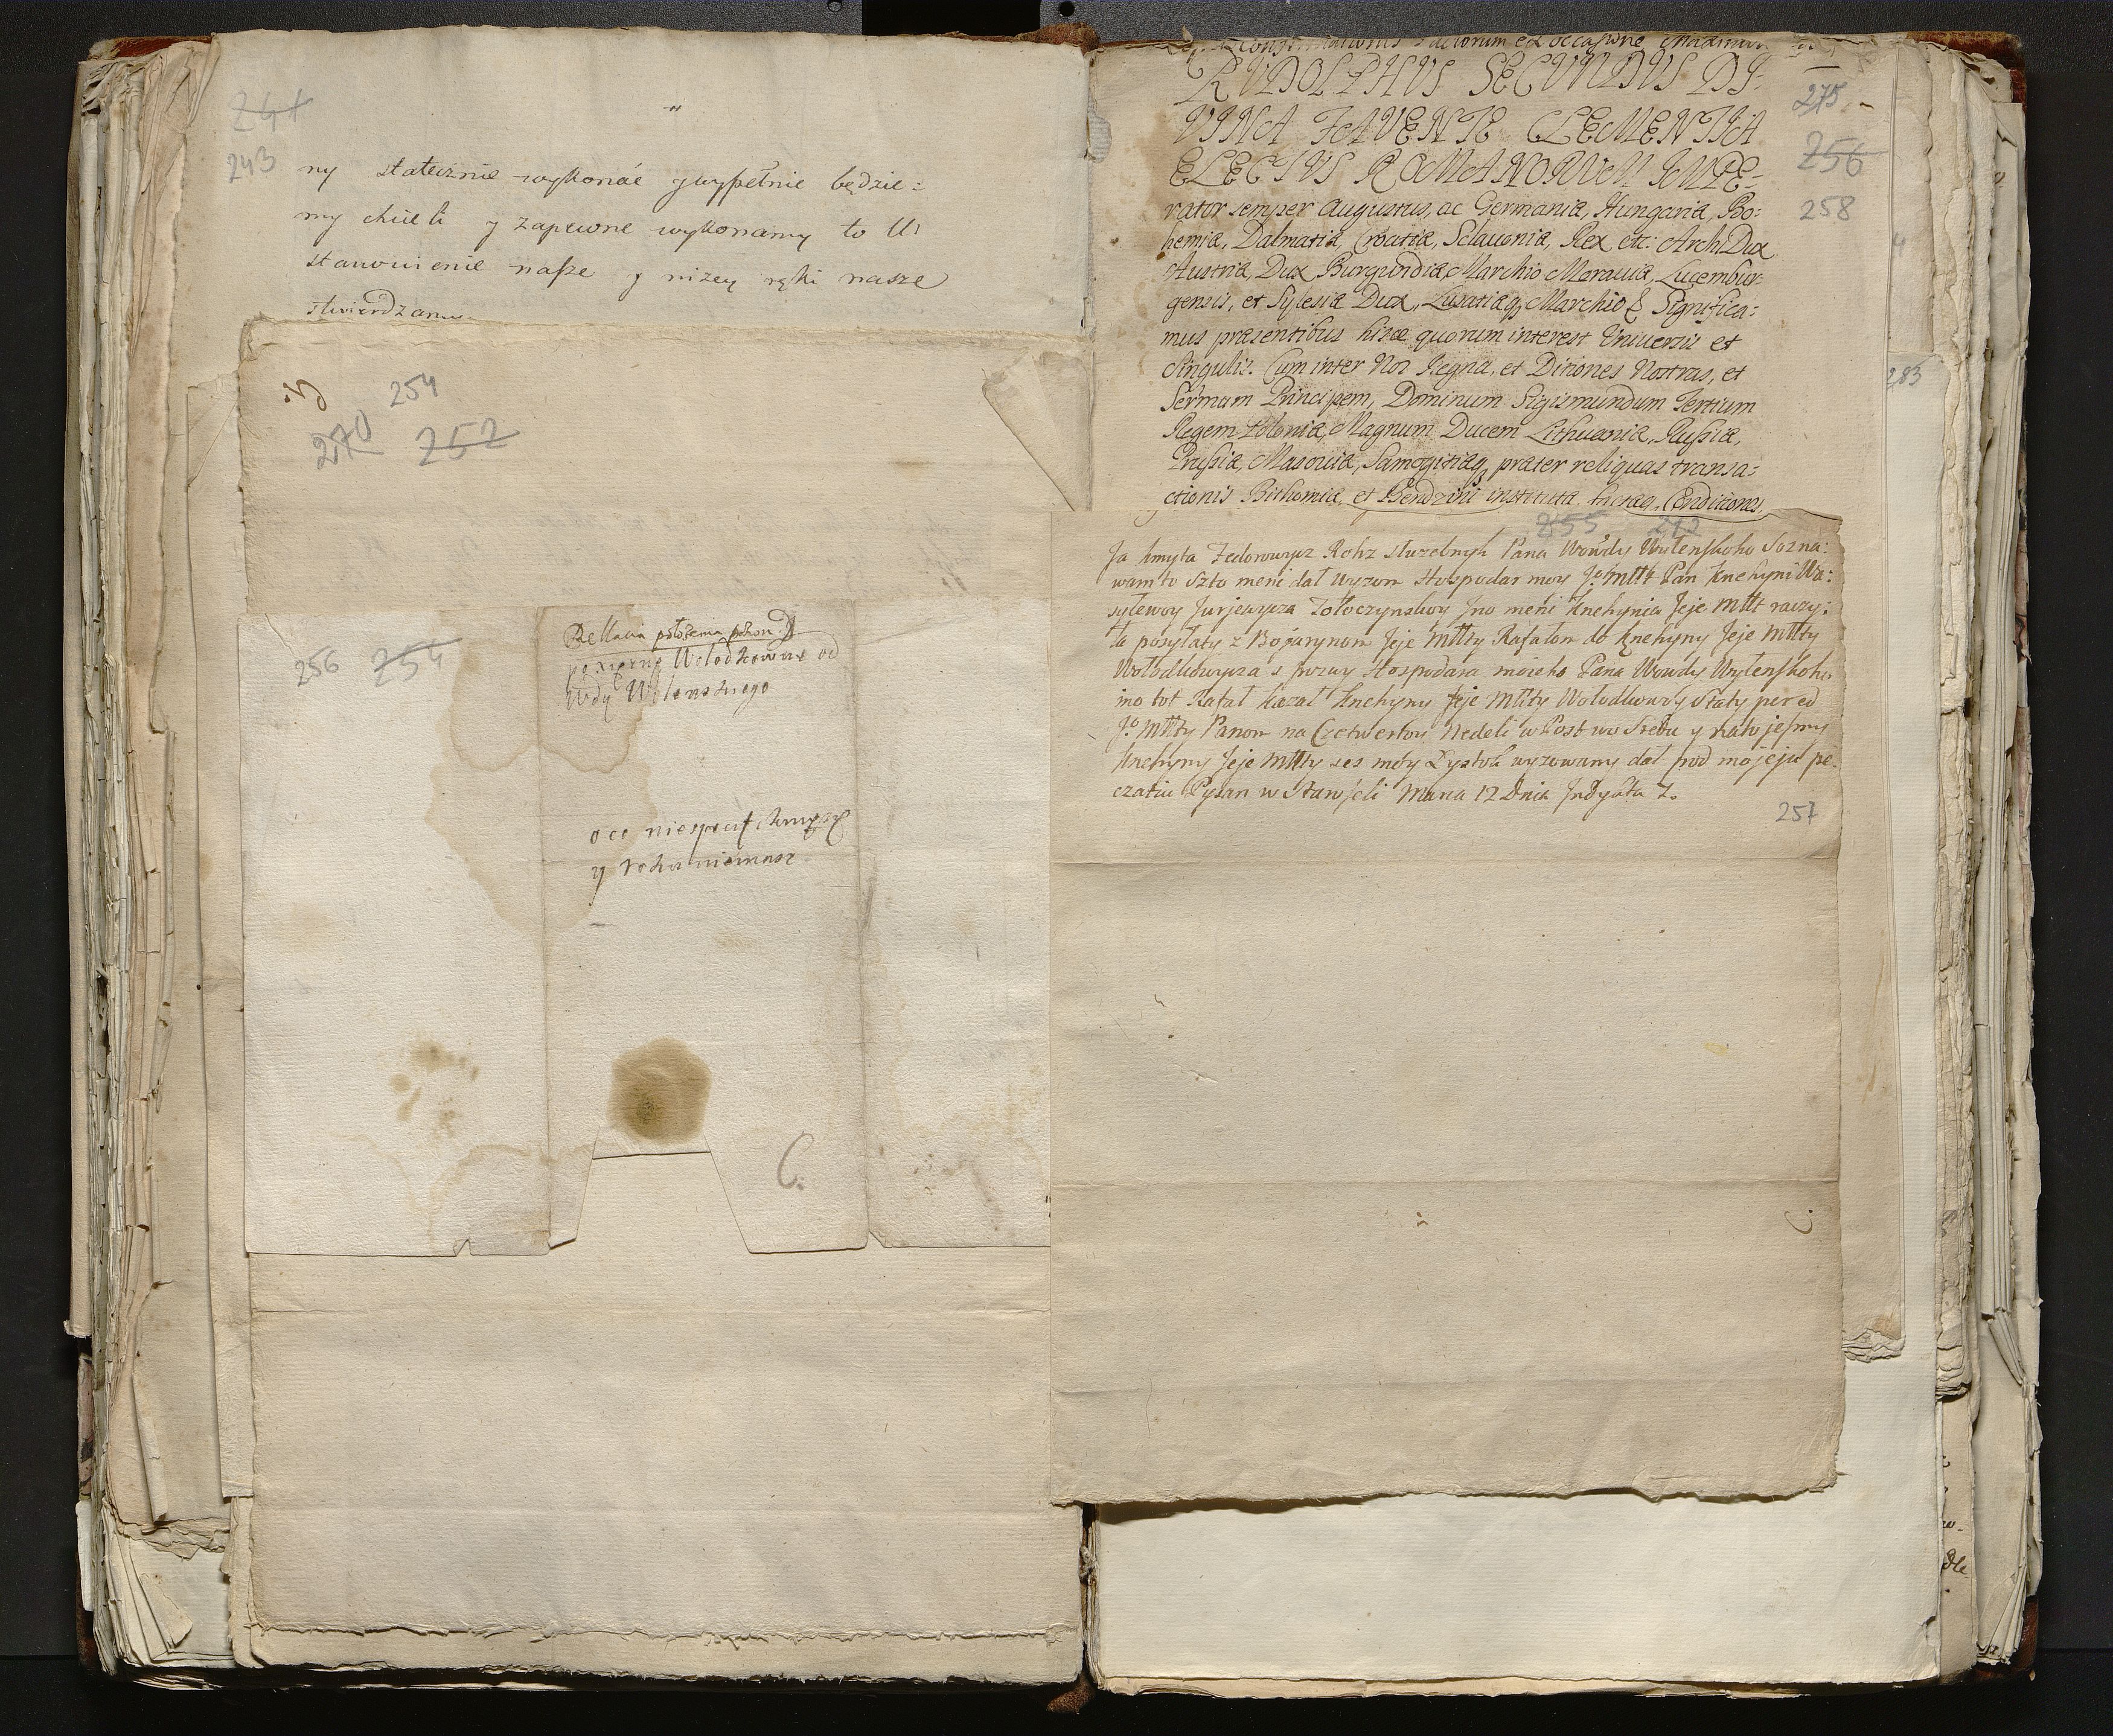 241
243
ny statecznie wykonać y wypełnie będzie=
my chcieli y zapewne wykonamy to U
stanowienie nasze y niżey ręki nasze
stwierdzamy
254
270 252
256 254
Rellacia położenia pozwu
po xiężnę Wolodkowne od
Wdy Wilenskiego
oco
y roku niemasz
C.
RVDOLPHVS SECVNDVS DI=
VINA FAVENTE CLEMENTIA
ELECTVS ROMANORVM IMPE=
rator semper Augustus, ac Germaniæ, Hungariæ, Bo:
hemiæ, Dalmatiæ, Croatiæ, Sclauoniæ, Rex etc: ArchiDux
Austriæ, Dux Burgundiæ, Marchio Morauiæ, Lucembur=
gensis, et Sylesiæ Dux, Lusatiæq3 Marchio & Significa=
mus præsentibus hisce quorum interest Vniuersis et
Singulis. Cum inter Nos Regna, et Ditiones Nostras, et
Sermum Principem, Dominum Sigismundum Tertium
Regem Poloniæ, Magnum Ducem Lithuaniæ, Russiæ,
Prussiæ, Masouiæ, Samogitiæq3 præter reliquas transa=
ctionis Bithomiæ, et Bendzini institutæ factæq3 Conditiones
275
256
258
283
255 272
Ja Kmyta Fedorowycz Rohz służebnyk Pana Wowdy Wylenskoho Sozna:
wam to szto meni dał wyzom Hospodar moy Jo Mttt Pan Knehyni Wa:
sylewoy Jurjewycza Tołoczynskoy Jno meni Knehynia Jeje Mttt raczy:
ła posyłaty z Bojarynom Jeje Mttty Rafałom do Knehyny Jeje Mttty
Wołodkowycza s pozwy Hospodara mojeho Pana Wowdy Wylenskoho
ino tot Rafał kazał Knehyny Jeje Mttty Wołodkowoy Staty pered
Jo Mttty Panom na Czetwertoy Nedeli w Post wo Sredu y na to jesmy
Knehyny Jeje Mttty ses moy Lystok wyzowany dał pod mojeju pe:
czatiu Pysan w Stawseli Marta 12 Dnia Jndykta 7.
257
C.